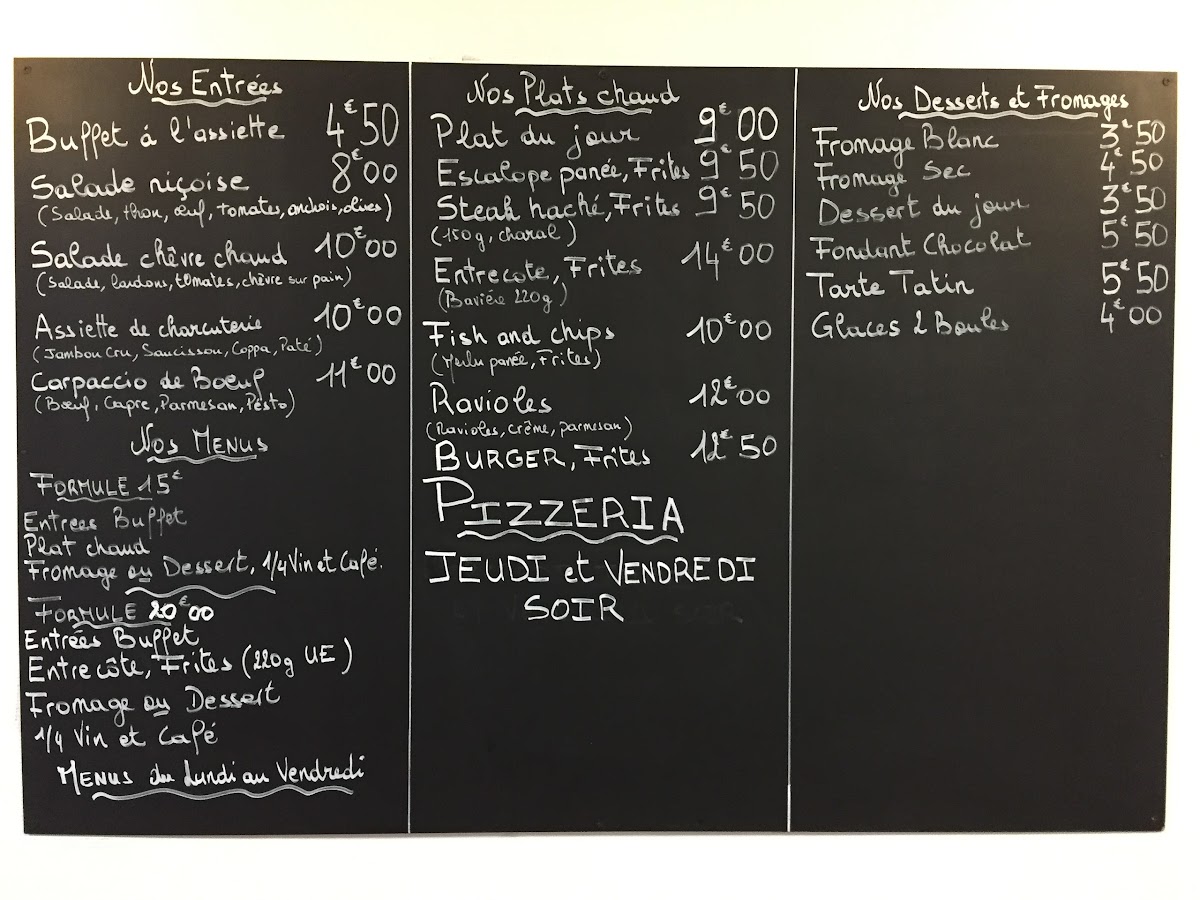 Nos Entrées
Buffet á l'assiette 4€50
Salade niçoise 8€00
(Salade, thon, œuf, tomates, anchois, olives)
Salade chêvre chaud 10€00
(Salade, lardons, tomates, chèvre sur pain)
Assiette de charcuterie 10€00
(Jambon Cru, Saucisson, Coppa, Paté)
Carpaccio de Bœuf 11€00
(Bœuf, Capre, Parmesan, Pesto)
Nos MENUS
FORMULE 15€
Entrees Buffet
Plat chaud
Fromage ou Dessert, 1/4 Vin et Café.
FORMULE 20€00
Entrées Buffet
Entrecôte, Frites (220g UE)
Fromage ou Dessert
1/4 Vin et Café
MENUS du Lundi au Vendredi
Nos Plats chaud
Plat du jour 9€00
Escalope panée, Frites 9€50
Steak haché, Frites 9€50
(150g, charal)
Entrecote, Frites 14€00
(Baviére 220g)
Fish and chips 10€00
(Merlu panée, Frites)
Ravioles 12€00
(Ravioles, crême, parmesan)
BURGER, Frîtes 12€50
PIZZERIA
JEUDI et VENDREDI
SOIR
Nos Desserts et Fromages
Fromage Blanc 3€50
Fromage Sec 4€50
Dessert du jour 3€50
Fondant Chocolat 5€50
Tarte Tatin 5€50
Glaces 2 Boules 4€00